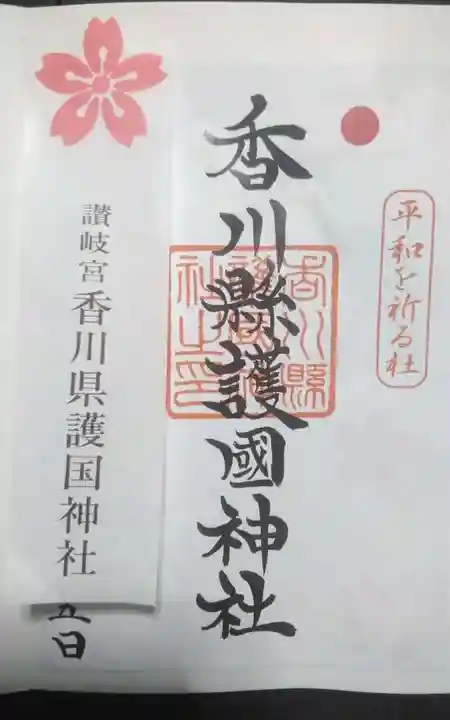 平和を祈る社
香川縣護國神社
香川縣護國神社之印
讃岐宮香川県護国神社
五日